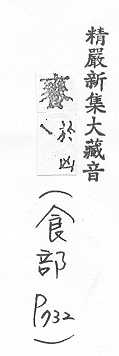 精嚴新集大藏音
於凶
(食部 P732)